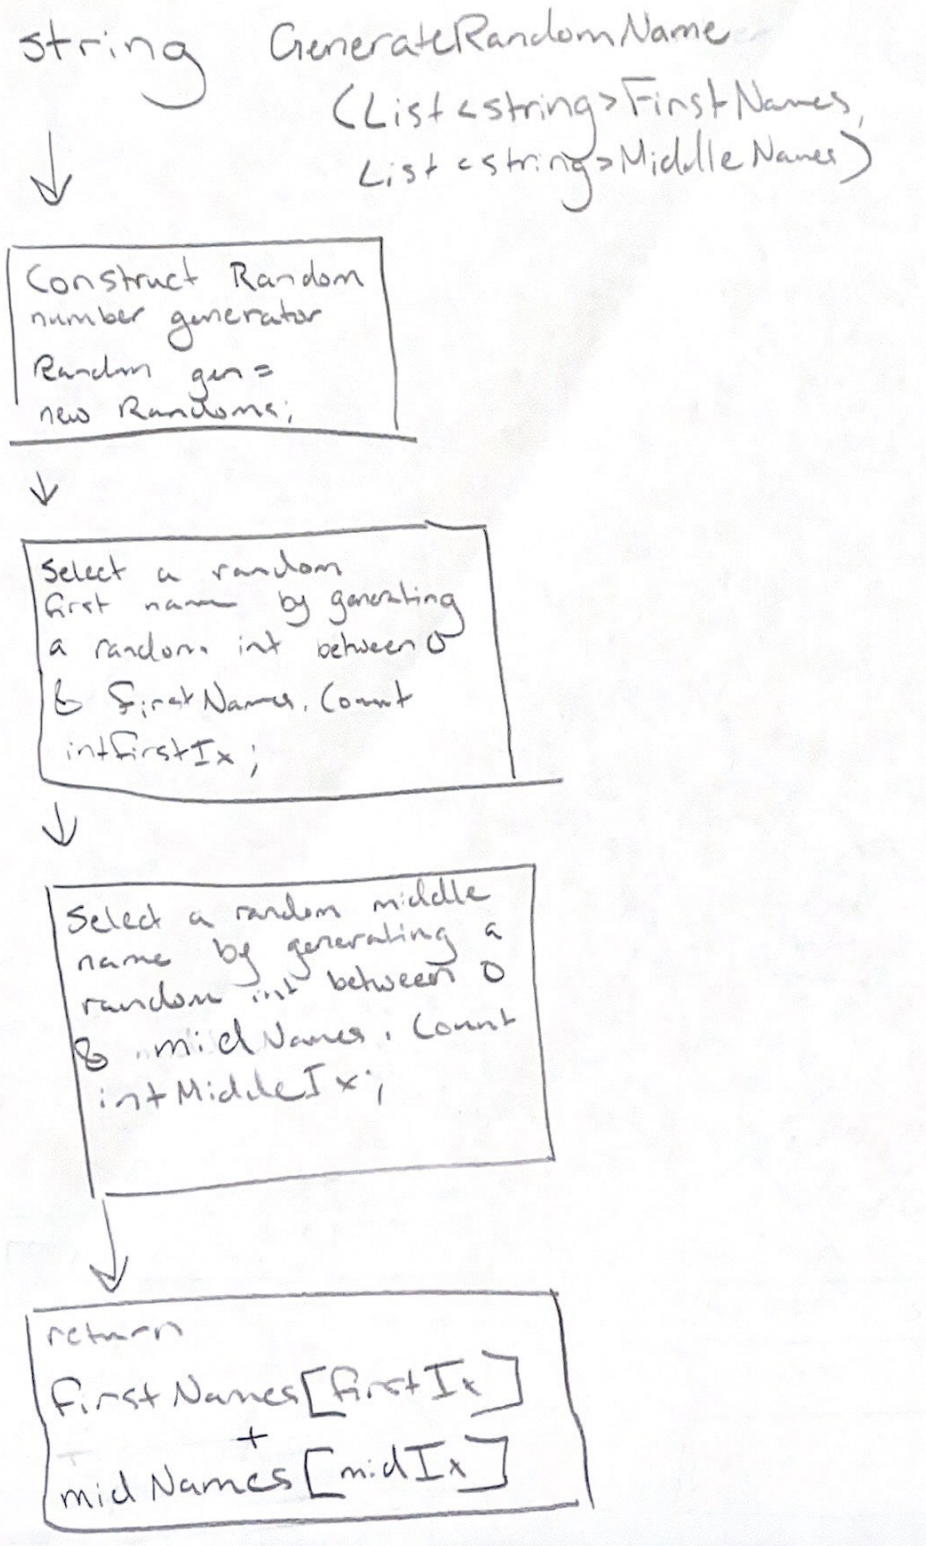 string GenerateRandomName
(List<string>FirstNames,
List<string>MiddleNames)
Construct Random
number generator
Random gen =
new Randoms;
Select a random
first name by generating
a random int between 0
& firstNames.Count
intfirstIx;
Select a random middle
name by generating a
random int between 0
& midNames.Count
intMiddleIx;
return
firstNames[firstIx]
+
midNames[midIx]